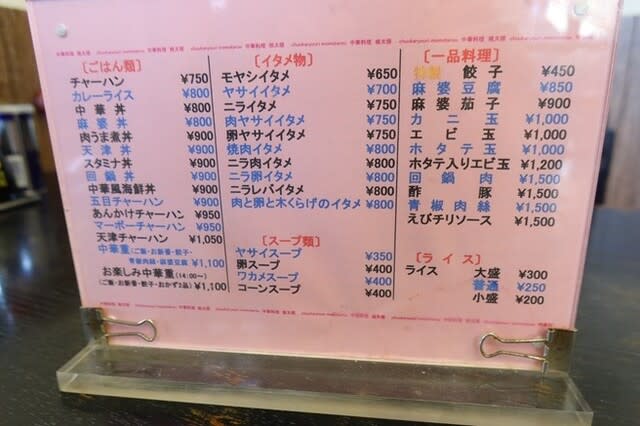 中華料理 桃太郎 chuukaryouri momotarou 中華料理 桃太郎 chuukaryouri momotarou 中華料理 桃太郎 chuukaryouri momotarou 中華料理 桃太郎
〔ごはん類〕
チャーハン ¥750
カレーライス ¥800
中華丼 ¥800
麻婆丼 ¥800
肉うま煮丼 ¥900
天津丼 ¥900
スタミナ丼 ¥900
回鍋丼 ¥900
中華風海鮮丼 ¥900
五目チャーハン ¥900
あんかけチャーハン ¥950
マーボーチャーハン ¥950
天津チャーハン ¥1,050
中華重(ご飯・お新香・餃子・
青椒肉絲・麻婆豆腐) ¥1,100
お楽しみ中華重(14:00〜)
(ご飯・お新香・餃子・おかず2品) ¥1,100
〔イタメ物〕
モヤシイタメ ¥650
ヤサイイタメ ¥700
ニライタメ ¥750
肉ヤサイイタメ ¥750
卵ヤサイイタメ ¥750
焼肉イタメ ¥800
ニラ肉イタメ ¥800
ニラ卵イタメ ¥800
ニラレバイタメ ¥800
肉と卵と木くらげのイタメ ¥800
〔スープ類〕
ヤサイスープ ¥350
卵スープ ¥400
ワカメスープ ¥400
コーンスープ ¥400
〔一品料理〕
特製 餃子 ¥450
麻婆豆腐 ¥850
麻婆茄子 ¥900
カニ玉 ¥1,000
エビ玉 ¥1,000
ホタテ玉 ¥1,000
ホタテ入りエビ玉 ¥1,200
回鍋肉 ¥1,500
酢豚 ¥1,500
青椒肉絲 ¥1,500
えびチリソース ¥1,500
〔ライス〕
ライス 大盛 ¥300
普通 ¥250
小盛 ¥200